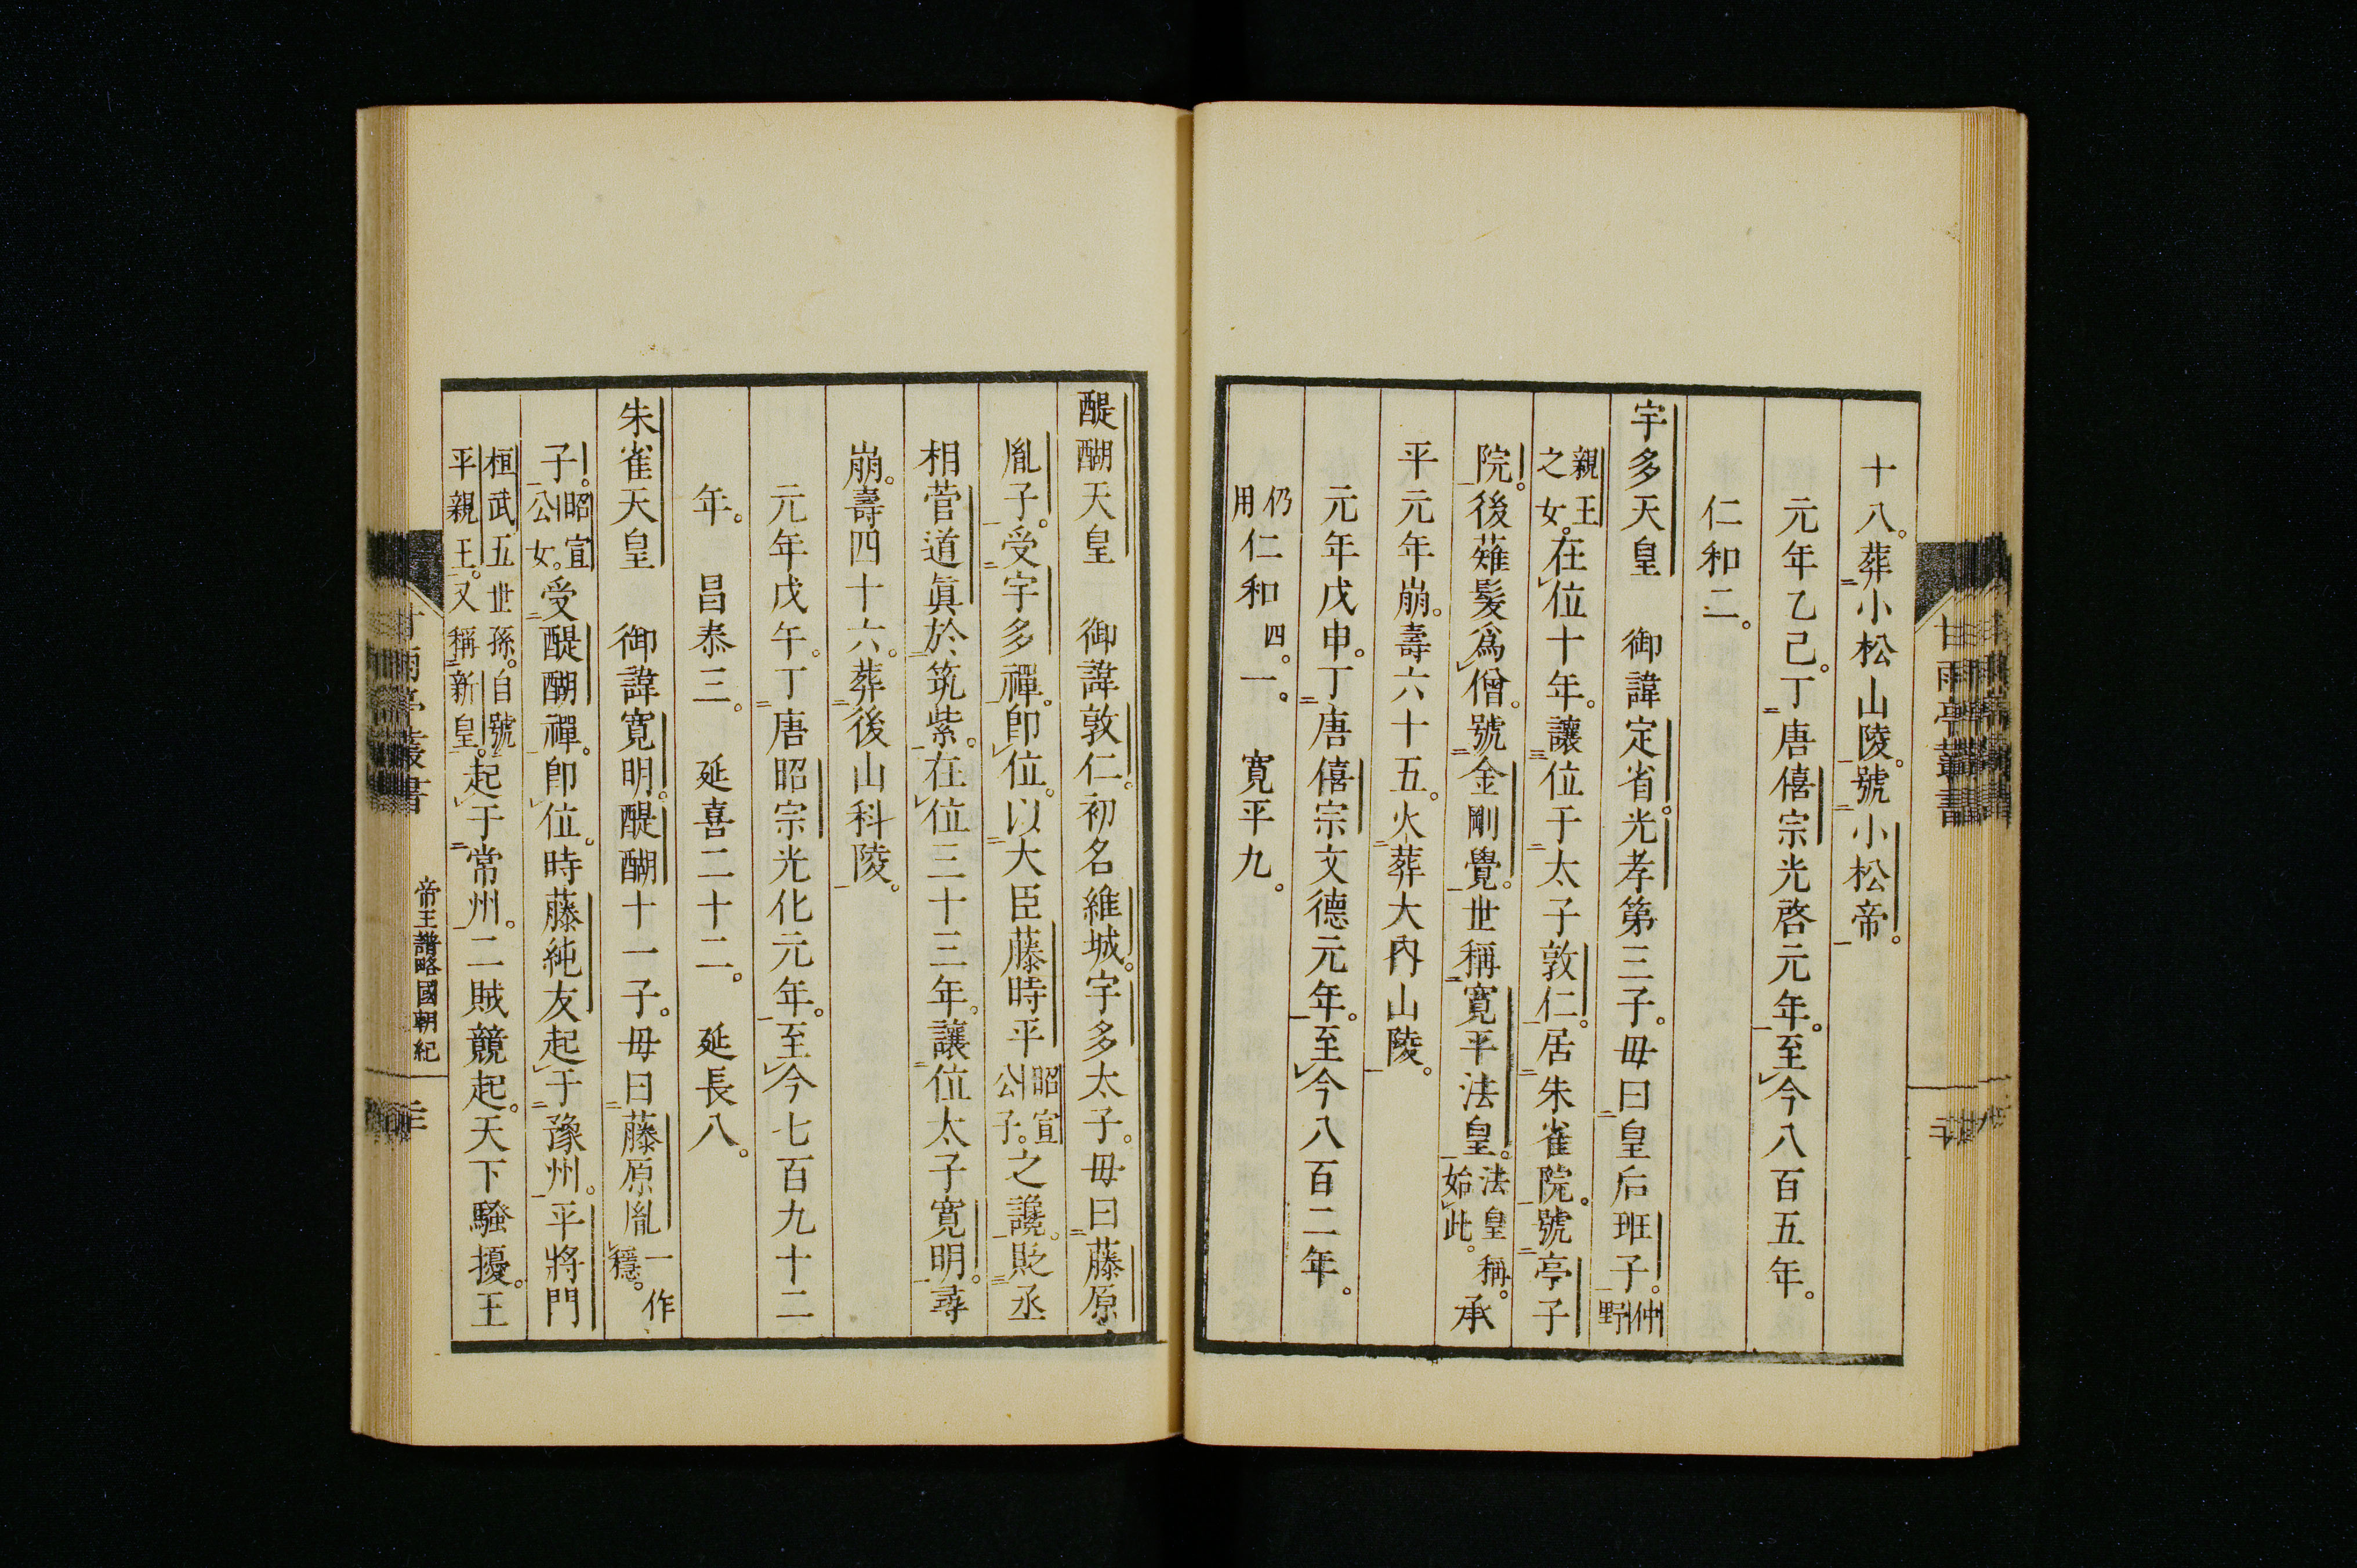 十八。葬小松山陵。號小松帝。
元年乙己。丁唐僖宗光啓元年。至今八百五年。
仁和二。
宇多天皇　御諱定省。光孝第三子。毋曰皇后班子。仲野
親王之女。在位十年。讓位于太子敦仁。居朱雀院。號亭子
院。後薙髮爲僧。號金剛覺。世稱寛平法皇。法皇稱。始此。承
平元年崩。壽六十五。火葬大內山陵。
元年戊申。丁唐僖宗文德元年。至今八百二年。
仍用仁和四。一。　寛平九。
醍醐天皇　御諱敦仁。初名維城。宇多太子。毋曰藤原
胤子。受宇多禪。卽位。以大臣藤時平昭宣公子。之讒。貶丞
相菅道眞於筑紫。在位三十三年。讓位太子寛明。尋
崩。壽四十六。葬後山科陵。
元年戊午。丁唐昭宗光化元年。至今七百九十二
年。　昌泰三。　延喜二十二。　延長八。
朱雀天皇　御諱寛明。醍醐十一子。毋曰藤原胤一作穩。
子。昭宣公女。受醍醐禪。卽位。時藤純友起于豫州。平將門
桓武五世孫。自號平親王。又稱新皇。起于常州。二賊競起。天下騷擾。王
甘雨亭叢書
帝王譜略國朝紀